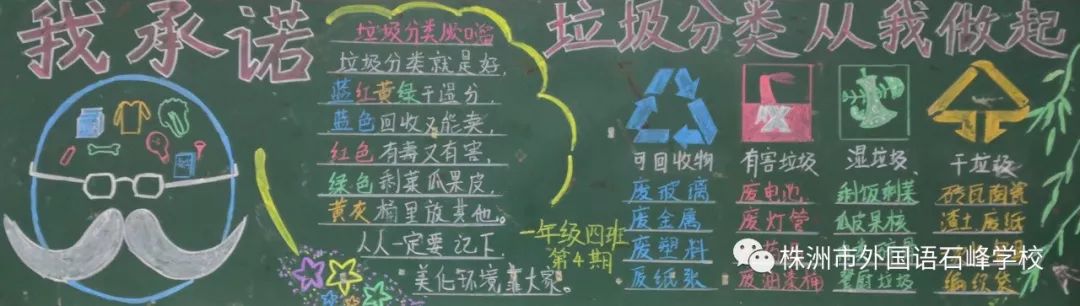 我承诺
垃圾分类顺口溜
垃圾分类就是好,
蓝红黄绿干湿分,
蓝色回收又能卖,
红色有毒又有害,
绿色剩菜瓜果皮,
黄灰桶里放其他。
人人一定要记下,
美化环境靠大家。
一年级四班
第4期
垃圾分类 从我做起
可回收物
废玻璃
废金属
废塑料
废纸张
有害垃圾
废电池,
废灯管
废油漆桶
湿垃圾、
剩饭剩菜
瓜皮果核
餐厨垃圾
干垃圾、
砖瓦陶瓷
渣土废纸
编织袋
株洲市外国语石峰学校